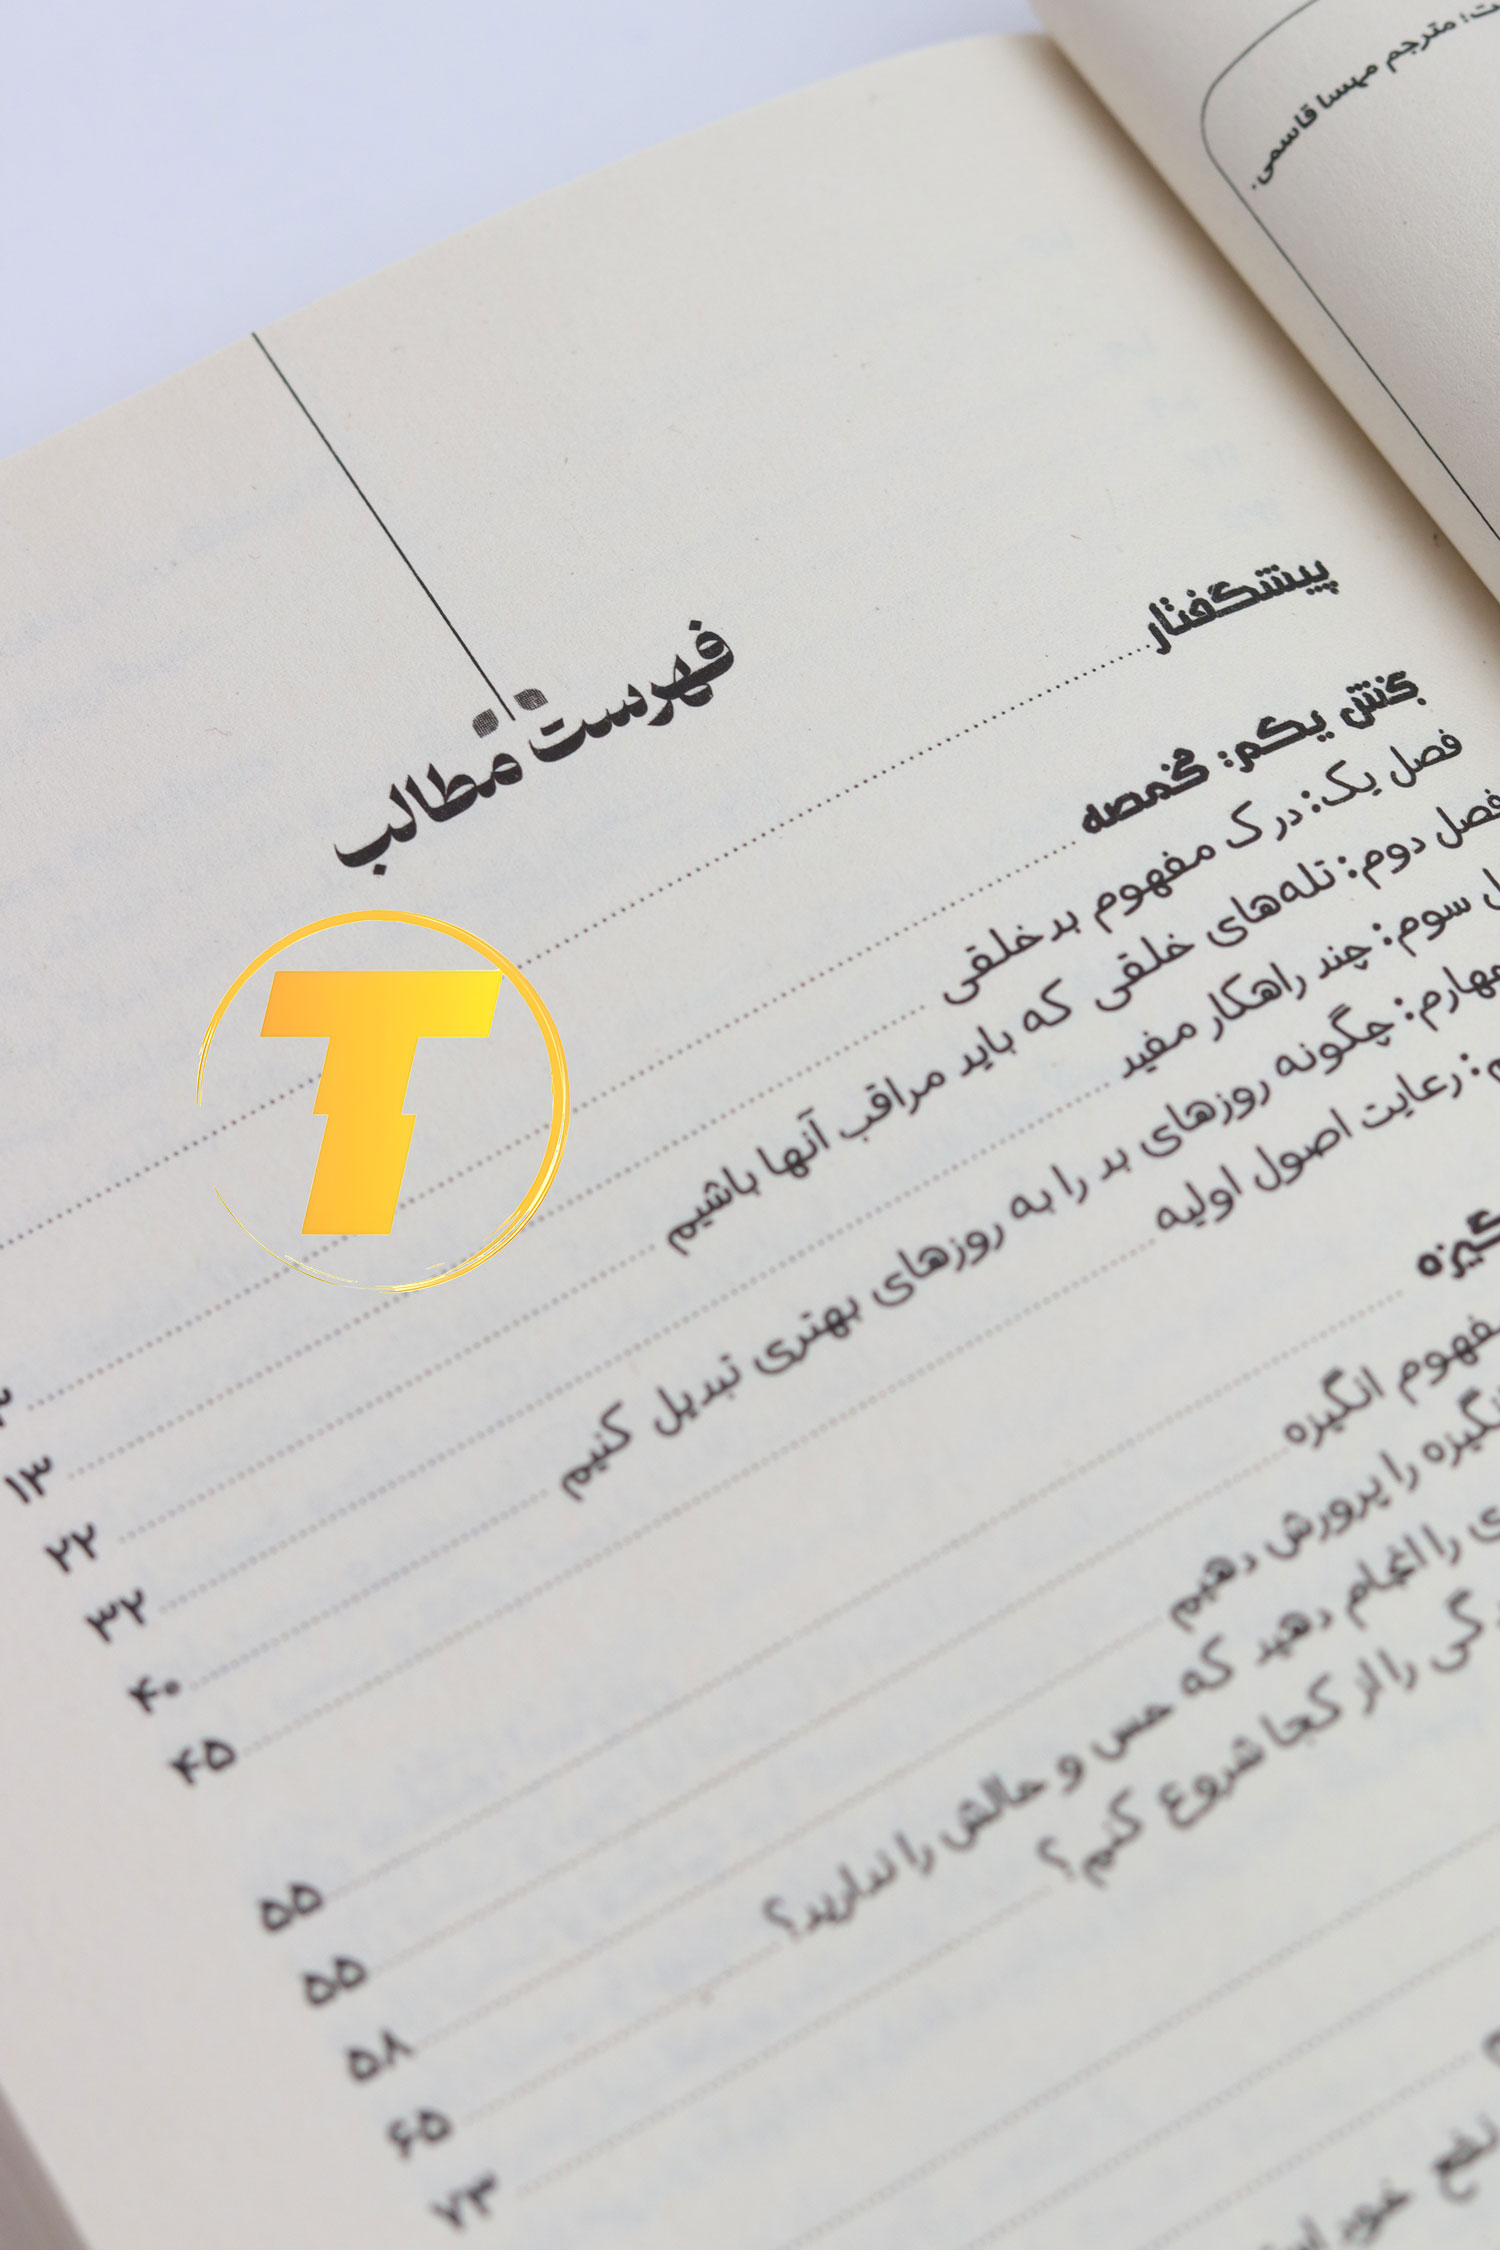 مترجم مهسا قاسمی.
فهرست مطالب
پیشگفتار
بخش یکم: مخمصه
۱۳
فصل یک: درک مفهوم بدخلقی
۲۲
فصل دوم: تله‌های خلقی که باید مراقب آنها باشیم
۳۲
سوم: چند راهکار مفید
۴۰
چگونه روزهای بد را به روزهای بهتری تبدیل کنیم
۴۵
رعایت اصول اولیه
۵۵
مفهوم انگیزه
۵۵
انگیزه را پرورش دهیم
۵۸
را انجام دهید که حس و حالش را ندارید؟
۶۵
را از کجا شروع کنیم؟
۷۳
T